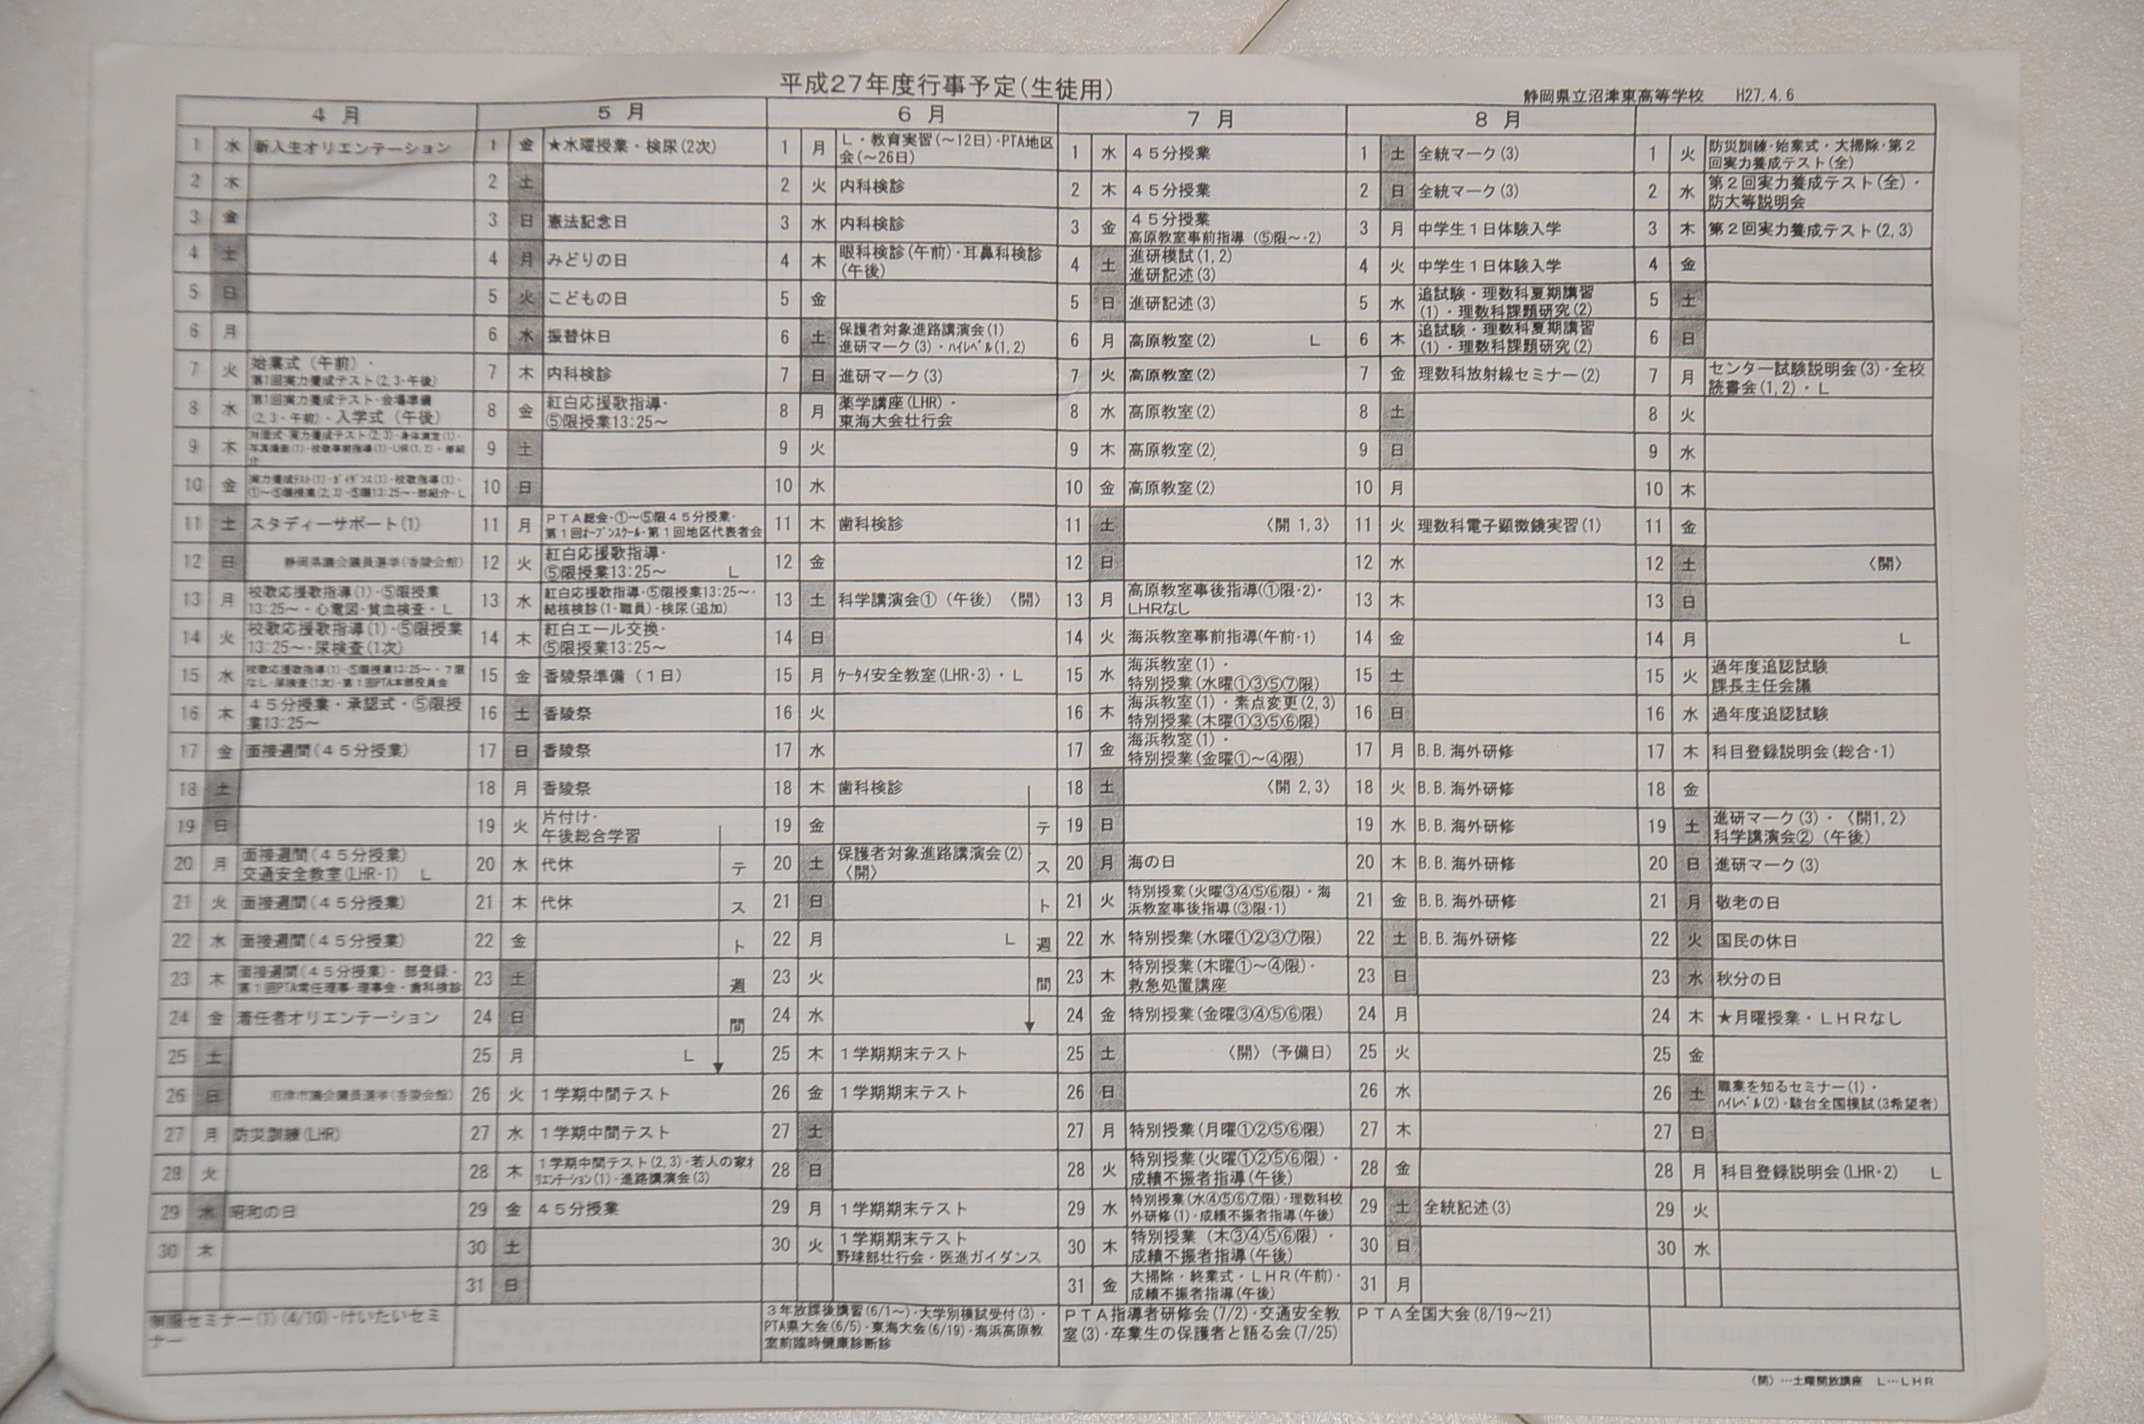 平成27年度行事予定(生徒用)
静岡県立沼津東高等学校 H27.4.6
4月
1 水 新入生オリエンテーション
2 木
3 金
4 土
5 日
6 月
7 火 始業式(午前)・
第1回実力養成テスト(2,3・午後)
8 水 第1回実力養成テスト・会場準備
(2,3・午前)・入学式(午後)
9 木 対面式・実力養成テスト(2,3)・身体測定(1)・
写真撮影(1)・校歌事前指導(1)・LHR(1,2)・部紹
介
10 金 実力養成テスト(1)・ガイダンス(1)・校歌指導(1)・
①~⑤限授業(2,3)・⑤限13:25~・部紹介・L
11 土 スタディーサポート(1)
12 日 静岡県議会議員選挙(香陵会館)
13 月 校歌応援歌指導(1)・⑤限授業
13:25~・心電図・貧血検査・L
14 火 校歌応援歌指導(1)・⑤限授業
13:25~・尿検査(1次)
15 水 校歌応援歌指導(1)・⑤限授業13:25~・7限
なし・尿検査(1次)・第1回PTA本部役員会
16 木 45分授業・承認式・⑤限授
業13:25~
17 金 面接週間(45分授業)
18 土
19 日
20 月 面接週間(45分授業)
交通安全教室(LHR・1) L
21 火 面接週間(45分授業)
22 水 面接週間(45分授業)
23 木 面接週間(45分授業)・部登録・
第1回PTA常任理事・理事会・歯科検診
24 金 着任者オリエンテーション
25 土
26 日 沼津市議会議員選挙(香陵会館)
27 月 防災訓練(LHR)
28 火
29 水 昭和の日
30 木
制服セミナー(1)(4/10)・けいたいセミ
ナー
5月
1 金 ★水曜授業・検尿(2次)
2 土
3 日 憲法記念日
4 月 みどりの日
5 火 こどもの日
6 水 振替休日
7 木 内科検診
8 金 紅白応援歌指導・
⑤限授業13:25~
9 土
10 日
11 月 PTA総会・①~⑤限45分授業・
第1回オープンスクール・第1回地区代表者会
12 火 紅白応援歌指導・
⑤限授業13:25~ L
13 水 紅白応援歌指導・⑤限授業13:25~・
結核検診(1・職員)・検尿(追加)
14 木 紅白エール交換・
⑤限授業13:25~
15 金 香陵祭準備(1日)
16 土 香陵祭
17 日 香陵祭
18 月 香陵祭
19 火 片付け・
午後総合学習
20 水 代休
21 木 代休
22 金
23 土
24 日
25 月 L
テスト週間
26 火 1学期中間テスト
27 水 1学期中間テスト
28 木 1学期中間テスト(2,3)・若人の家オ
リエンテーション(1)・進路講演会(3)
29 金 45分授業
30 土
31 日
6月
1 月 L・教育実習(~12日)・PTA地区
会(~26日)
2 火 内科検診
3 水 内科検診
4 木 眼科検診(午前)・耳鼻科検診
(午後)
5 金
6 土 保護者対象進路講演会(1)
進研マーク(3)・ハイレベル(1,2)
7 日 進研マーク(3)
8 月 薬学講座(LHR)・
東海大会壮行会
9 火
10 水
11 木 歯科検診
12 金
13 土 科学講演会①(午後)〈開〉
14 日
15 月 ケータイ安全教室(LHR・3)・L
16 火
17 水
18 木 歯科検診
19 金
20 土 保護者対象進路講演会(2)
〈開〉
21 日
22 月 L
23 火
24 水
テスト週間
25 木 1学期期末テスト
26 金 1学期期末テスト
27 土
28 日
29 月 1学期期末テスト
30 火 1学期期末テスト
野球部壮行会・医進ガイダンス
3年放課後講習(6/1~)・大学別模試受付(3)・
PTA県大会(6/5)・東海大会(6/19)・海浜高原教
室前臨時健康診断診
7月
1 水 45分授業
2 木 45分授業
3 金 45分授業
高原教室事前指導(⑤限~・2)
4 土 進研模試(1,2)
進研記述(3)
5 日 進研記述(3)
6 月 高原教室(2) L
7 火 高原教室(2)
8 水 高原教室(2)
9 木 高原教室(2)
10 金 高原教室(2)
11 土 〈開 1,3〉
12 日
13 月 高原教室事後指導(①限・2)・
LHRなし
14 火 海浜教室事前指導(午前・1)
15 水 海浜教室(1)・
特別授業(水曜①③⑤⑦限)
16 木 海浜教室(1)・素点変更(2,3)
特別授業(木曜①③⑤⑥限)
17 金 海浜教室(1)・
特別授業(金曜①~④限)
18 土 〈開 2,3〉
19 日
20 月 海の日
21 火 特別授業(火曜③④⑤⑥限)・海
浜教室事後指導(③限・1)
22 水 特別授業(水曜①②③⑦限)
23 木 特別授業(木曜①~④限)・
救急処置講座
24 金 特別授業(金曜③④⑤⑥限)
25 土 〈開〉(予備日)
26 日
27 月 特別授業(月曜①②⑤⑥限)
28 火 特別授業(火曜①②⑤⑥限)・
成績不振者指導(午後)
29 水 特別授業(水④⑤⑥⑦限)・理数科校
外研修(1)・成績不振者指導(午後)
30 木 特別授業(木③④⑤⑥限)・
成績不振者指導(午後)
31 金 大掃除・終業式・LHR(午前)・
成績不振者指導(午後)
PTA指導者研修会(7/2)・交通安全教
室(3)・卒業生の保護者と語る会(7/25)
8月
1 土 全統マーク(3)
2 日 全統マーク(3)
3 月 中学生1日体験入学
4 火 中学生1日体験入学
5 水 追試験・理数科夏期講習
(1)・理数科課題研究(2)
6 木 追試験・理数科夏期講習
(1)・理数科課題研究(2)
7 金 理数科放射線セミナー(2)
8 土
9 日
10 月
11 火 理数科電子顕微鏡実習(1)
12 水
13 木
14 金
15 土
16 日
17 月 B.B.海外研修
18 火 B.B.海外研修
19 水 B.B.海外研修
20 木 B.B.海外研修
21 金 B.B.海外研修
22 土 B.B.海外研修
23 日
24 月
25 火
26 水
27 木
28 金
29 土 全統記述(3)
30 日
31 月
PTA全国大会(8/19~21)
1 火 防災訓練・始業式・大掃除・第2
回実力養成テスト(全)
2 水 第2回実力養成テスト(全)・
防大等説明会
3 木 第2回実力養成テスト(2,3)
4 金
5 土
6 日
7 月 センター試験説明会(3)・全校
読書会(1,2)・L
8 火
9 水
10 木
11 金
12 土 〈開〉
13 日
14 月 L
15 火 過年度追認試験
課長主任会議
16 水 過年度追認試験
17 木 科目登録説明会(総合・1)
18 金
19 土 進研マーク(3)・〈開1,2〉
科学講演会②(午後)
20 日 進研マーク(3)
21 月 敬老の日
22 火 国民の休日
23 水 秋分の日
24 木 ★月曜授業・LHRなし
25 金
26 土 職業を知るセミナー(1)・
ハイレベル(2)・駿台全国模試(3希望者)
27 日
28 月 科目登録説明会(LHR・2) L
29 火
30 水
〈開〉…土曜開放講座 L…LHR